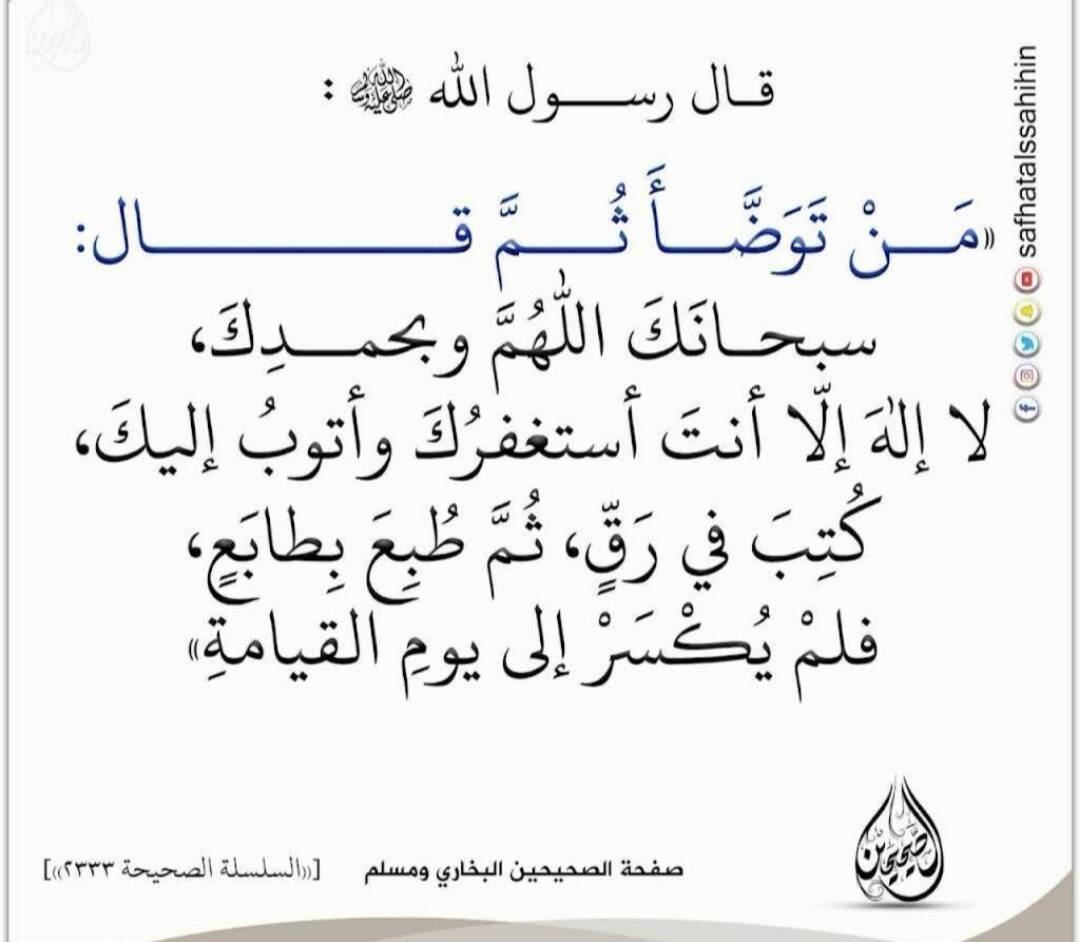 قال رسول الله ﷺ :
«مَنْ تَوَضَّأَ ثُمَّ قال:
سبحانَكَ اللّهُمَّ وبحمدِكَ،
لا إلٰهَ إلّا أنتَ أستغفرُكَ وأتوبُ إليكَ،
كُتِبَ في رَقٍّ، ثُمَّ طُبِعَ بِطابَعٍ،
فلمْ يُكْسَرْ إلى يومِ القيامةِ»
صفحة الصحيحين البخاري ومسلم
[«السلسلة الصحيحة ٢٣٣٣»]
safhatalssahihin
الصحيحين